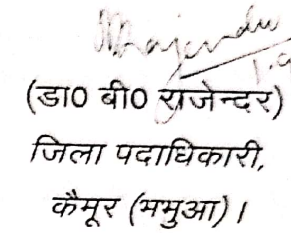 (डा0 बी0 राजेन्दर)
जिला पदाधिकारी,
कैमूर (भभुआ)।